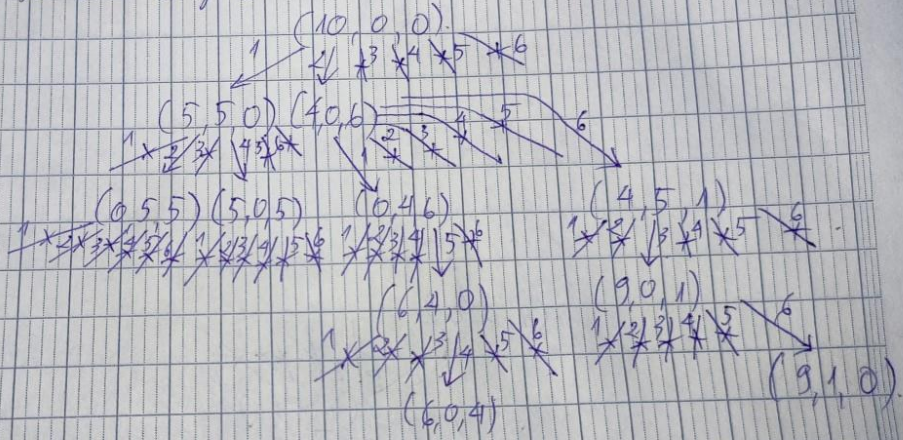 (10, 0, 0).
1 2 3 4 5 6
(5, 5, 0) (4, 0, 6)
1 2 3 4 5 6 1 2 3 4 5 6
(0, 5, 5) (5, 0, 5) (0, 4, 6) (4, 5, 1)
1 2 3 4 5 6 1 2 3 4 5 6 1 2 3 4 5 6 1 2 3 4 5 6
(6, 4, 0) (9, 0, 1)
1 2 3 4 5 6 1 2 3 4 5 6
(9, 1, 0).
(6, 0, 4)